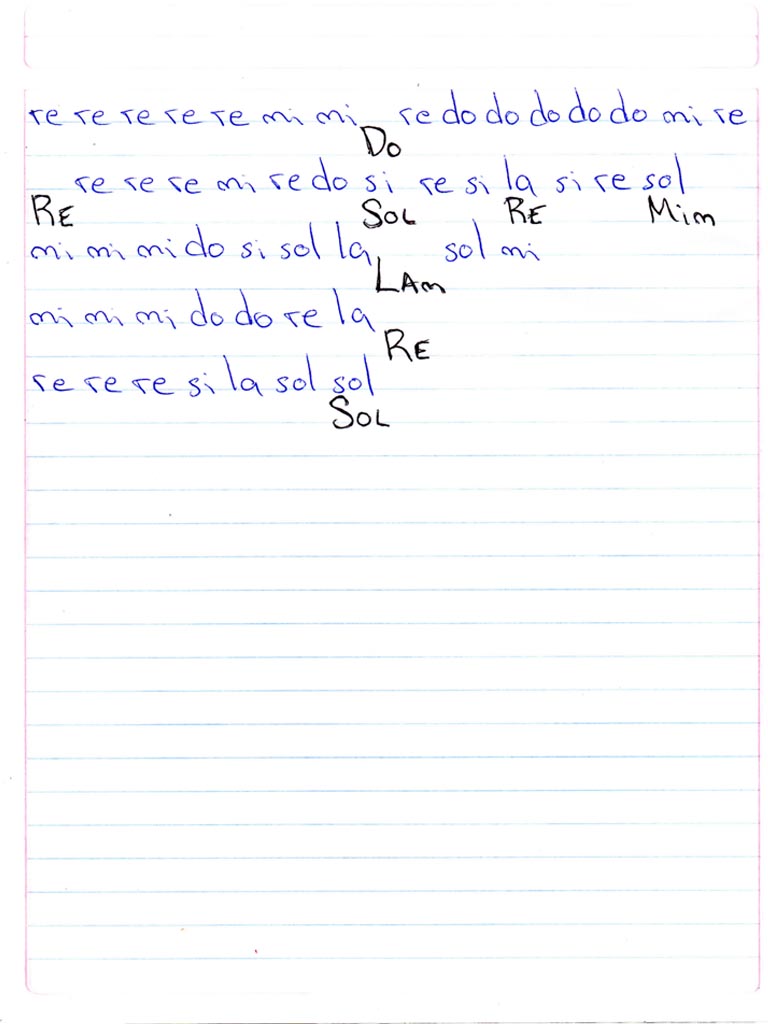 re re re re re mi mi re do do do do do mi re
Do
re re re mi re do si re si la si re sol
RE SOL RE Mim
mi mi mi do si sol la sol mi
LAm
mi mi mi do do re la
RE
re re re si la sol sol
SOL